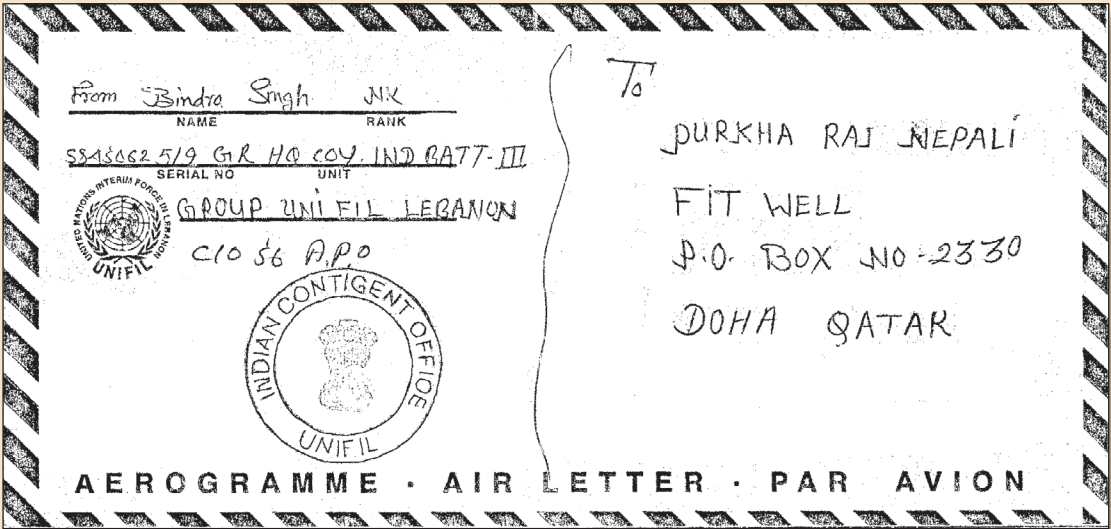 From Bindra Singh NK
NAME RANK
5843062 5/9 GR HQ COY. IND BATT-III
SERIAL NO UNIT
UNITED NATIONS INTERIM FORCE IN LEBANON
UNIFIL
GROUP UNIFIL LEBANON
C/O 56 A.P.O
INDIAN CONTIGENT OFFICE
UNIFIL
To
PURKHA RAJ NEPALI
FIT WELL
P.O. BOX NO-2330
DOHA QATAR
AEROGRAMME · AIR LETTER · PAR AVION